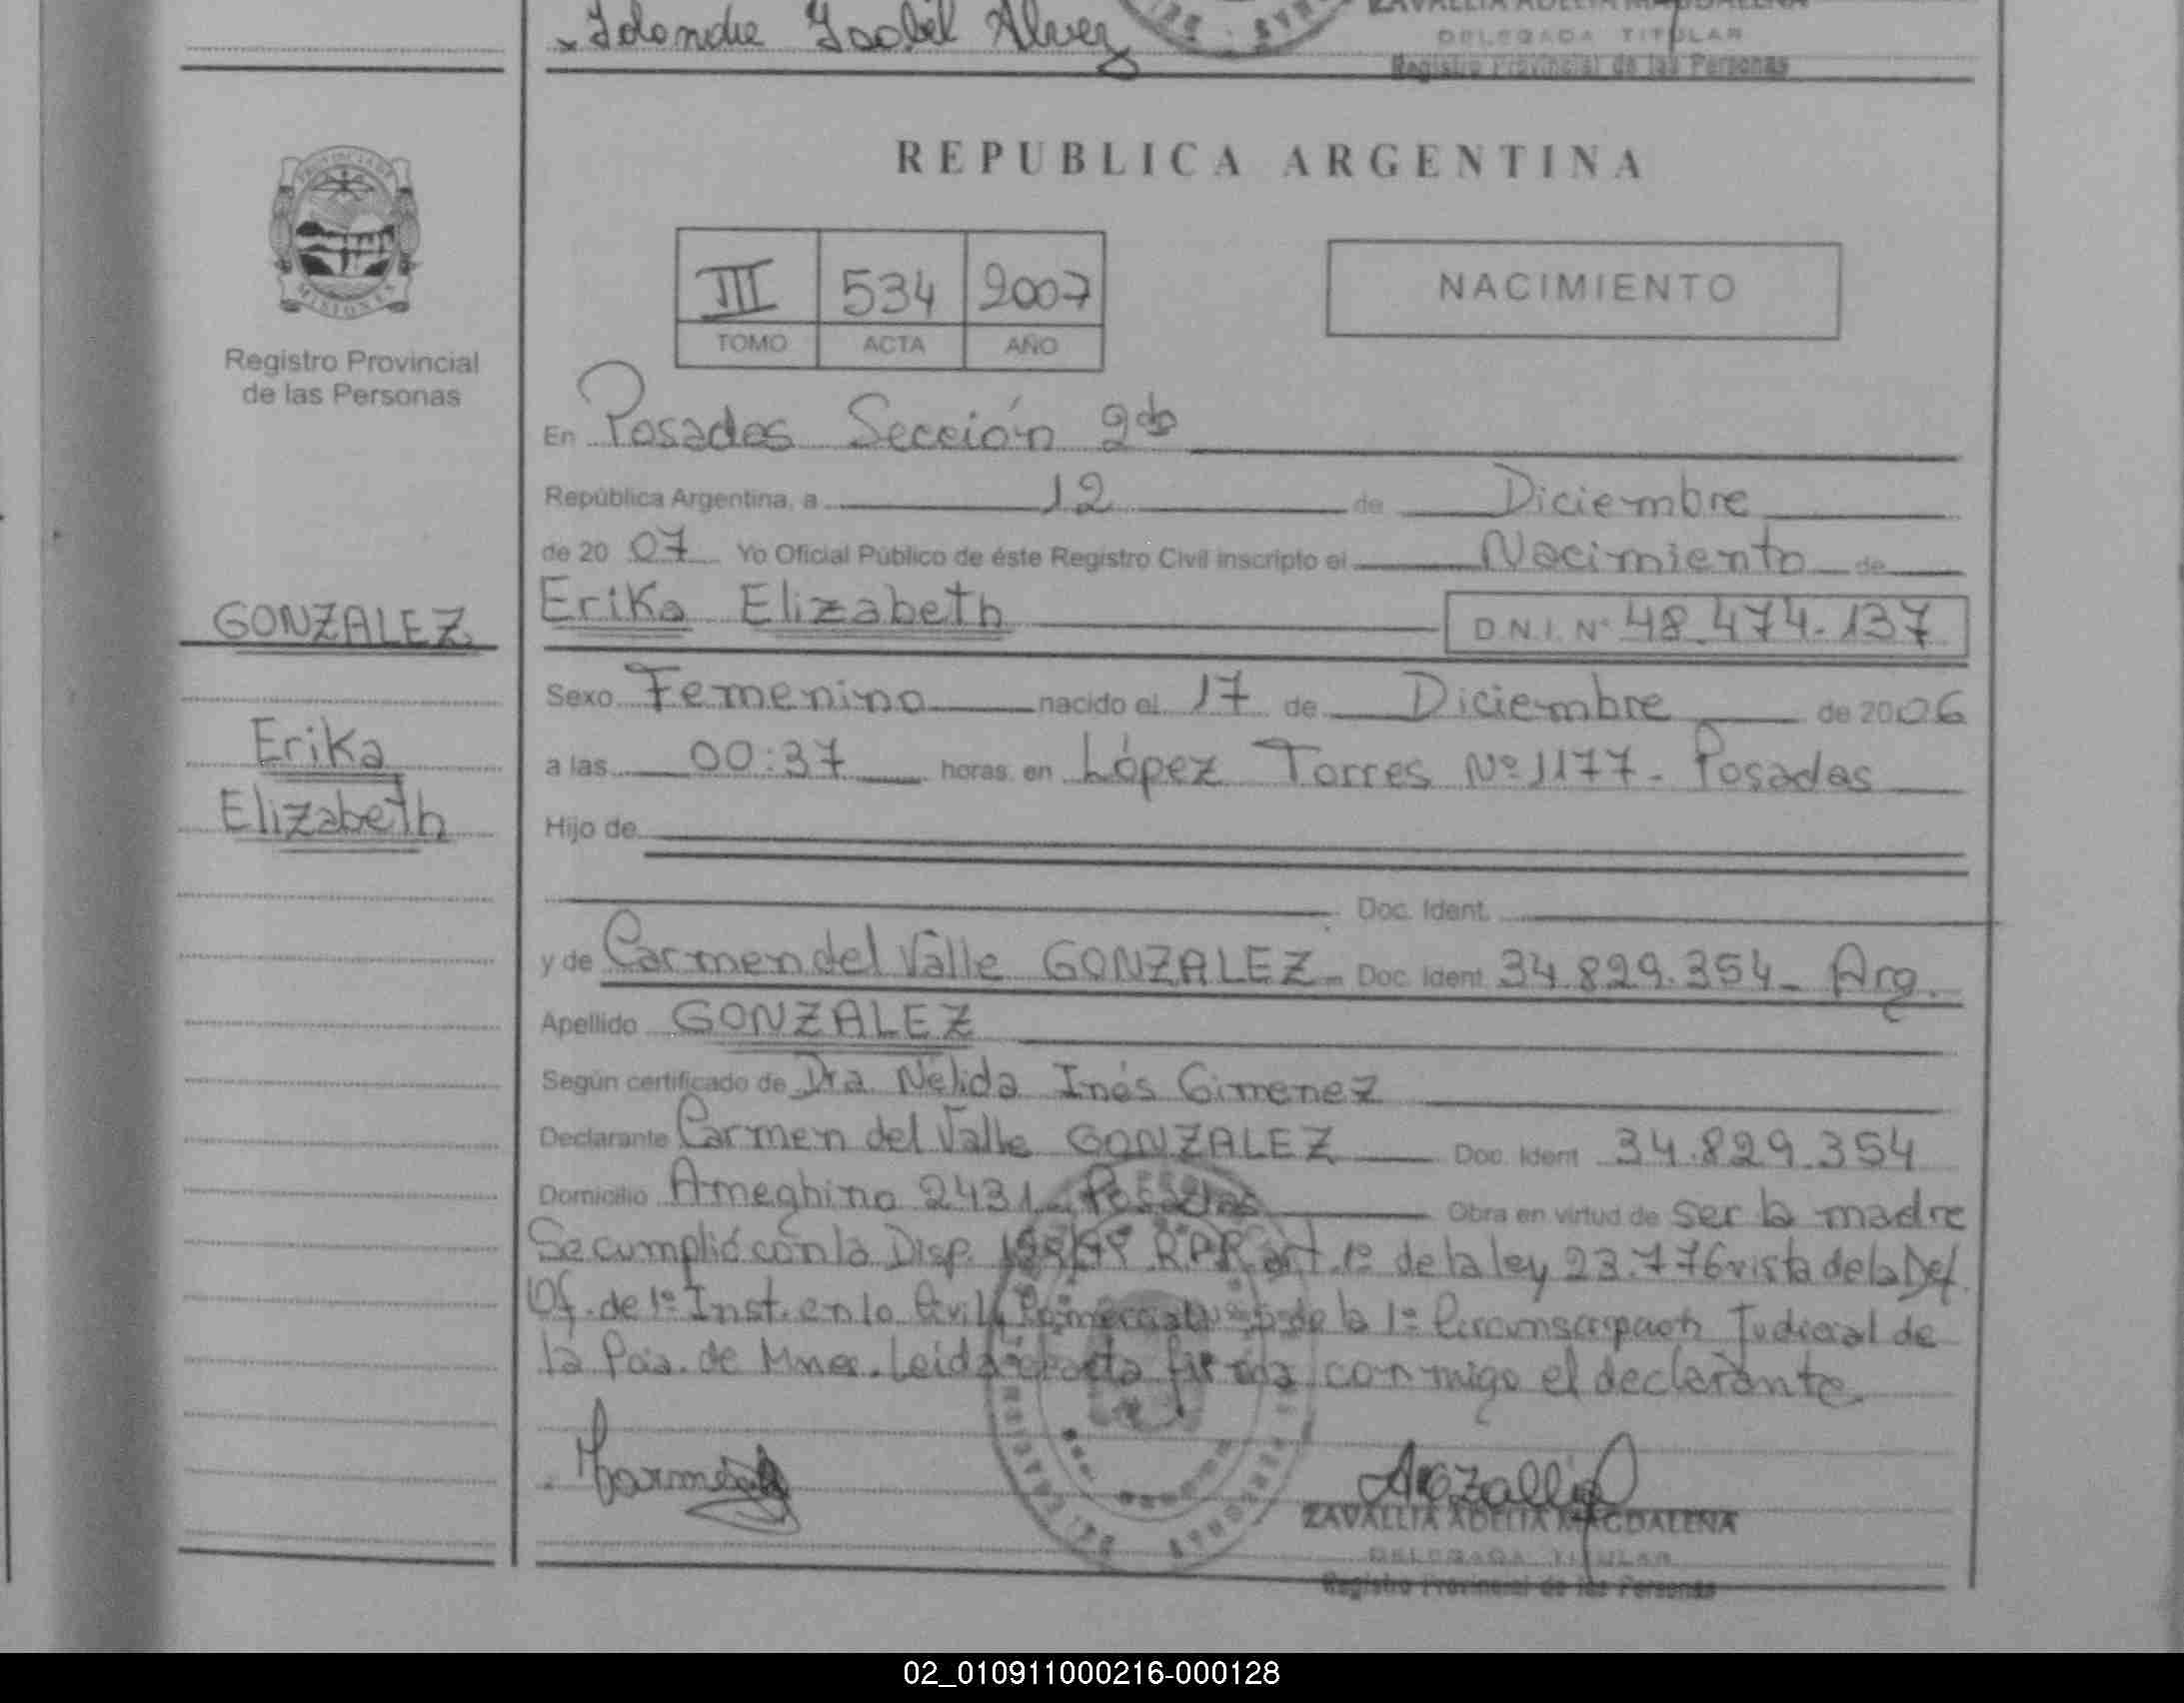 Isabel Alvez
DELEGADA TITULAR
Registro Provincial de las Personas
REPUBLICA ARGENTINA
PROVINCIA DE
MISIONES
Registro Provincial
de las Personas
III 534 2007
TOMO ACTA AÑO
NACIMIENTO
En Posadas Sección 2da
República Argentina, a 12 de Diciembre
de 20 07 Yo Oficial Público de éste Registro Civil inscripto el Nacimiento de
GONZALEZ
Erika Elizabeth D.N.I. Nº 48.474.137
Sexo Femenino nacido el 17 de Diciembre de 2006
Erika
a las 00:37 horas en López Torres Nº 1177- Posadas
Elizabeth
Hijo de
Doc. Ident.
y de Carmen del Valle GONZALEZ- Doc. Ident. 34.829.354- Arg.
Apellido GONZALEZ
Según certificado de Dra Nélida Inés Gimenez
Declarante Carmen del Valle GONZALEZ Doc. Ident 34.829.354
Domicilio Ameghino 2431- Posadas Obra en virtud de ser la madre
Se cumplió con la Disp. RPP art. 1º de la ley 23.776 vista de la Def.
Of. de 1º Inst. en lo Civil Comercial de la 1º Circunscripción Judicial de
la Pcia. de Mnes. Leida el acta firma conmigo el declarante.
ZAVALLIA ADELIA MAGDALENA
DELEGADA TITULAR
Registro Provincial de las Personas
02_010911000216-000128